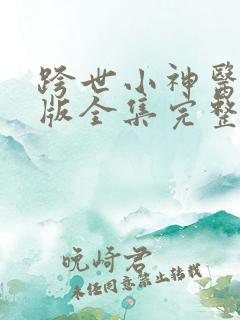 跨世小神醫
版全集完整
晚崎君
未经同意禁止转载